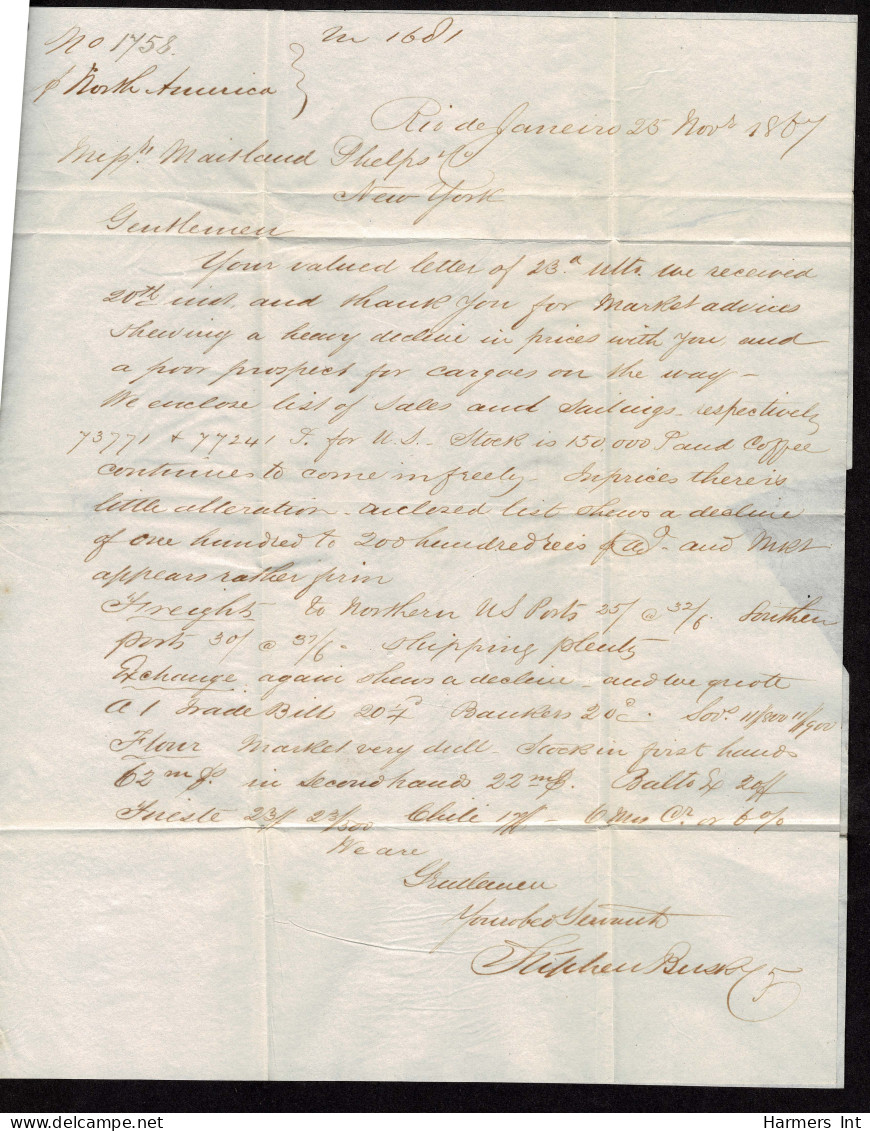 No 1758.
In 1681
p North America
Rio de Janeiro 25 Novr. 1867
Messrs. Maitland Phelps & Co
New York
Gentlemen
Your valued letter of 23d ulto. we received
20th inst. and thank you for market advices
shewing a heavy decline in prices with you and
a poor prospect for cargoes on the way —
We enclose list of sales and sailings respectively
73771 & 77241 for U.S. Stock is 150,000 and Coffee
continues to come in freely. In prices there is
little alteration enclosed list shews a decline
of one hundred to 200 hundred reis and Mkt
appears rather firm
Freights to Northern US Ports 25/ @ 32/6. Southern
ports 30/ @ 37/6 - shipping plenty
Exchange again shews a decline - and we quote
A 1 Trade Bill 20 Bankers 20 Sovs. 11/800 11/900
Flour Market very dull. Stock in first hands
62 m in second hands 22 m. Balto Ex 20
Trieste 23 23/500 Chile 17 - 6 Mos Cr. or 6 %
We are
Gentlemen
Your obed Servants
Stephen Busk & Co
Harmers Int